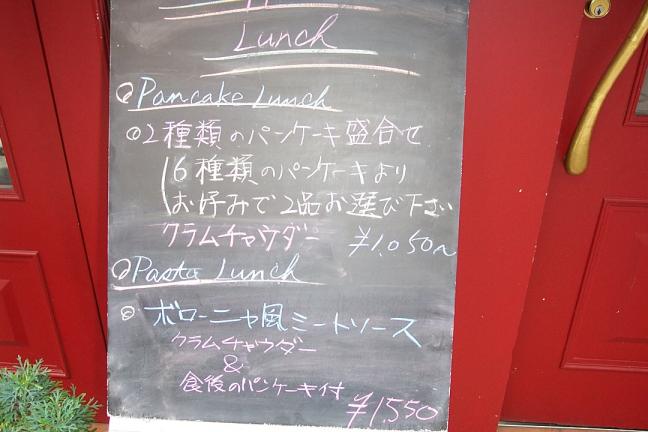 Lunch
Pancake Lunch
◎2種類のパンケーキ盛合せ
6種類のパンケーキより
お好みで2品お選び下さい
クラムチャウダー ¥1,050〜
Pasta Lunch
◎ボローニャ風ミートソース
クラムチャウダー
&
食後のパンケーキ付
¥1,550